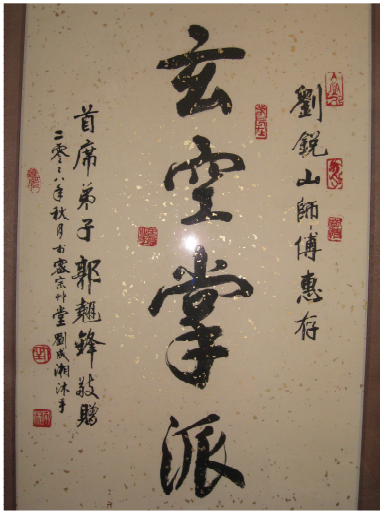 劉銳山師傅惠存
玄空掌派
首席弟子郭翹鋒敬贈
二零〻八年秋月於宗艸堂劉成湘沐手